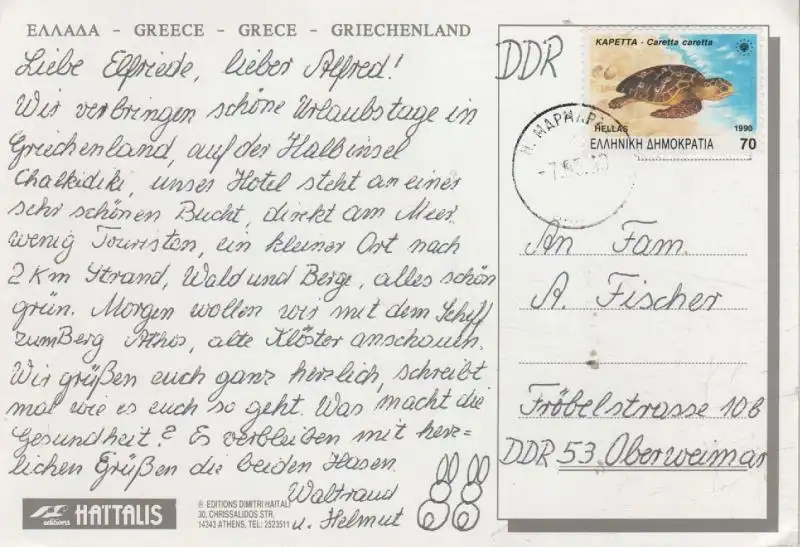 ΕΛΛΑΔΑ - GREECE - GRECE - GRIECHENLAND
Liebe Elfriede, lieber Alfred!
Wir verbringen schöne Urlaubstage in
Griechenland, auf der Halbinsel
Chalkidiki, unser Hotel steht an einer
sehr schönen Bucht, direkt am Meer,
wenig Touristen, ein kleiner Ort nach
2 Km Strand, Wald und Berge, alles schön
grün. Morgen wollen wir mit dem Schiff
zum Berg Athos, alte Klöster anschauen.
Wir grüßen euch ganz herzlich, schreibt
mal wie es euch so geht. Was macht die
Gesundheit? Es verbleiben mit herz=
lichen Grüßen die beiden Hasen.
Waltraud
u. Helmut
editions HATTALIS
® EDITIONS DIMITRI HAITALI
30, CHRISSALIDOS STR.
14343 ATHENS, TEL: 2523511
DDR
ΚΑΡΕΤΤΑ - Caretta caretta
HELLAS 1990
ΕΛΛΗΝΙΚΗ ΔΗΜΟΚΡΑΤΙΑ 70
Ν. ΜΑΡΜΑΡΑ
An Fam.
A. Fischer
Fröbelstrasse 10b
DDR 53 Oberweimar